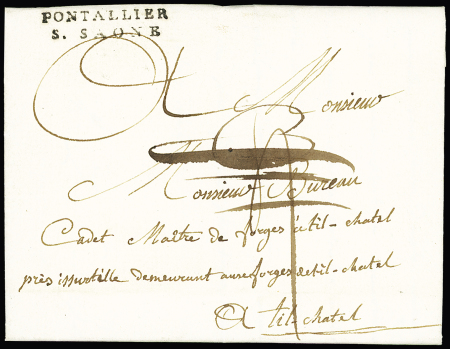 PONTALLIER
S. SAONE
A Monsieur
Monsieur Bureau
Cadet Maître de forges à til-chatel
près issurtille demeurant aux forges de til-chatel
A til-chatel